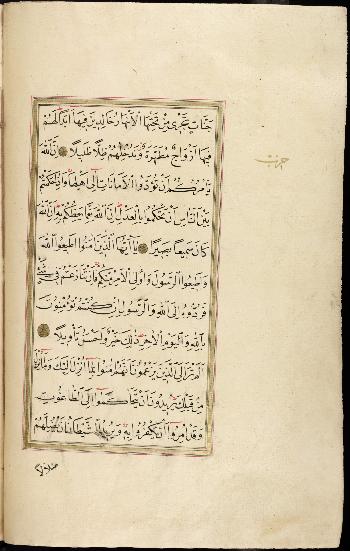 جَنَّاتٍ تَجْرِي مِنْ تَحْتِهَا الْأَنْهَارُ خَالِدِينَ فِيهَا أَبَدًا لَهُمْ
فِيهَا أَزْوَاجٌ مُطَهَّرَةٌ وَنُدْخِلُهُمْ ظِلًّا ظَلِيلًا إِنَّ اللَّهَ
يَأْمُرُكُمْ أَنْ تُؤَدُّوا الْأَمَانَاتِ إِلَى أَهْلِهَا وَإِذَا حَكَمْتُمْ
بَيْنَ النَّاسِ أَنْ تَحْكُمُوا بِالْعَدْلِ إِنَّ اللَّهَ نِعِمَّا يَعِظُكُمْ بِهِ إِنَّ اللَّهَ
كَانَ سَمِيعًا بَصِيرًا يَا أَيُّهَا الَّذِينَ آمَنُوا أَطِيعُوا اللَّهَ
وَأَطِيعُوا الرَّسُولَ وَأُولِي الْأَمْرِ مِنْكُمْ فَإِنْ تَنَازَعْتُمْ فِي شَيْءٍ
فَرُدُّوهُ إِلَى اللَّهِ وَالرَّسُولِ إِنْ كُنْتُمْ تُؤْمِنُونَ
بِاللَّهِ وَالْيَوْمِ الْآخِرِ ذَلِكَ خَيْرٌ وَأَحْسَنُ تَأْوِيلًا
أَلَمْ تَرَ إِلَى الَّذِينَ يَزْعُمُونَ أَنَّهُمْ آمَنُوا بِمَا أُنْزِلَ إِلَيْكَ وَمَا أُنْزِلَ
مِنْ قَبْلِكَ يُرِيدُونَ أَنْ يَتَحَاكَمُوا إِلَى الطَّاغُوتِ
وَقَدْ أُمِرُوا أَنْ يَكْفُرُوا بِهِ وَيُرِيدُ الشَّيْطَانُ أَنْ يُضِلَّهُمْ
حزب